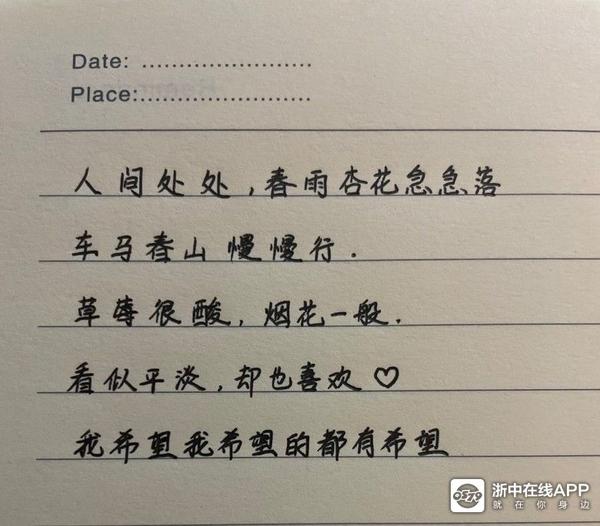 Date: ......................
Place:......................
人间处处,春雨杏花急急落
车马春山慢慢行.
草莓很酸,烟花一般.
看似平淡,却也喜欢♡
我希望我希望的都有希望
浙中在线APP
就在你身边